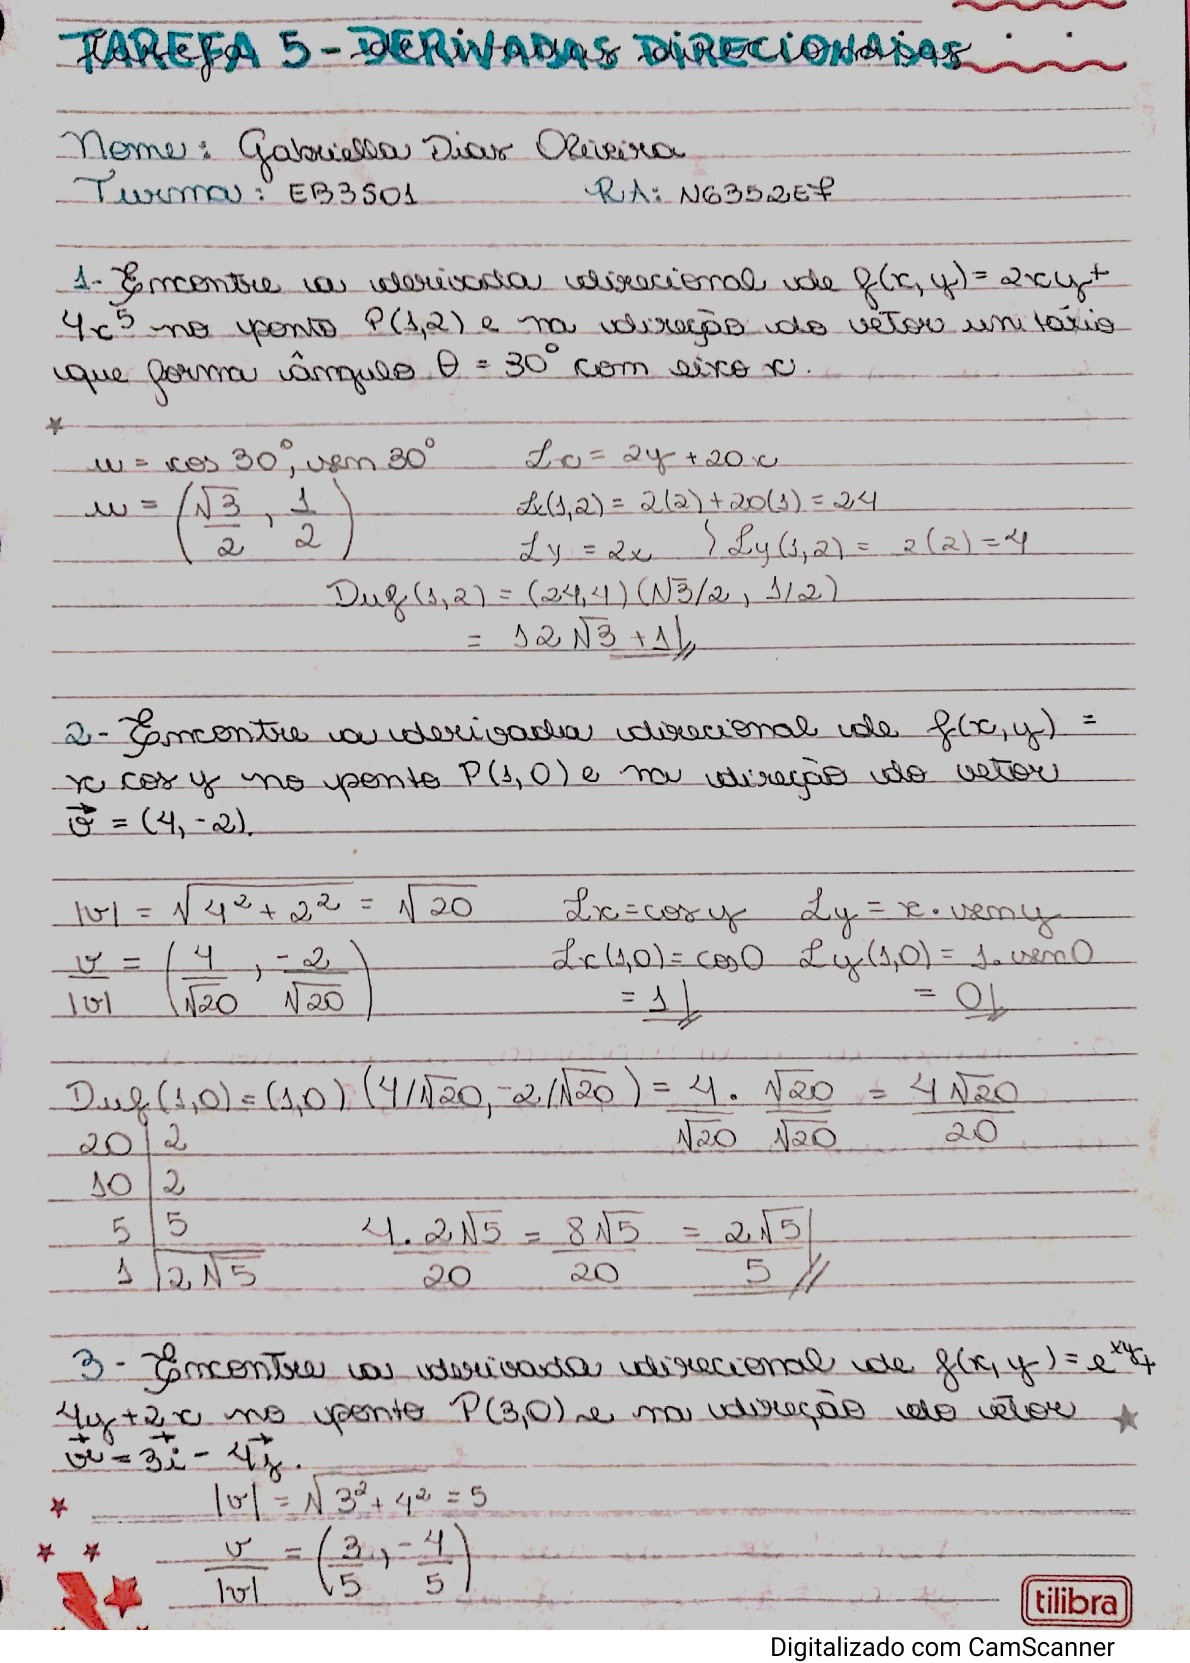 TAREFA 5 - DERIVADAS DIRECIONADAS
Nome: Gabriella Dias Oliveira
Turma: EB3S01 RA: N6352E7
1- Encontre a derivada direcional de f(x,y) = 2xy +
4x⁵ no ponto P(1,2) e na direção do vetor unitário
que forma ângulo θ = 30° com eixo x.
u = cos 30°, sen 30° fx = 2y + 20x
u = (√3/2, 1/2) fx(1,2) = 2(2) + 20(1) = 24
fy = 2x } fy(1,2) = 2(2) = 4
Duf(1,2) = (24,4) (√3/2, 1/2)
= 12√3 + 1
2- Encontre a derivada direcional de f(x,y) =
x cos y no ponto P(1,0) e na direção do vetor
v⃗ = (4,-2).
|v| = √4² + 2² = √20 fx = cos y fy = x . sen y
v/|v| = (4/√20, -2/√20) fx(1,0) = cos 0 fy(1,0) = 1. sen 0
= 1 = 0
Duf(1,0) = (1,0) (4/√20, -2/√20) = 4/√20 . √20/√20 = 4√20/20
20 | 2
10 | 2
5 | 5 4.2√5/20 = 8√5/20 = 2√5/5
1 | 2√5
3 - Encontre a derivada direcional de f(x,y) = e^xy +
4y + 2x no ponto P(3,0) e na direção do vetor
v⃗ = 3i⃗ - 4j⃗.
|v| = √3² + 4² = 5
v/|v| = (3/5, -4/5)
tilibra
Digitalizado com CamScanner